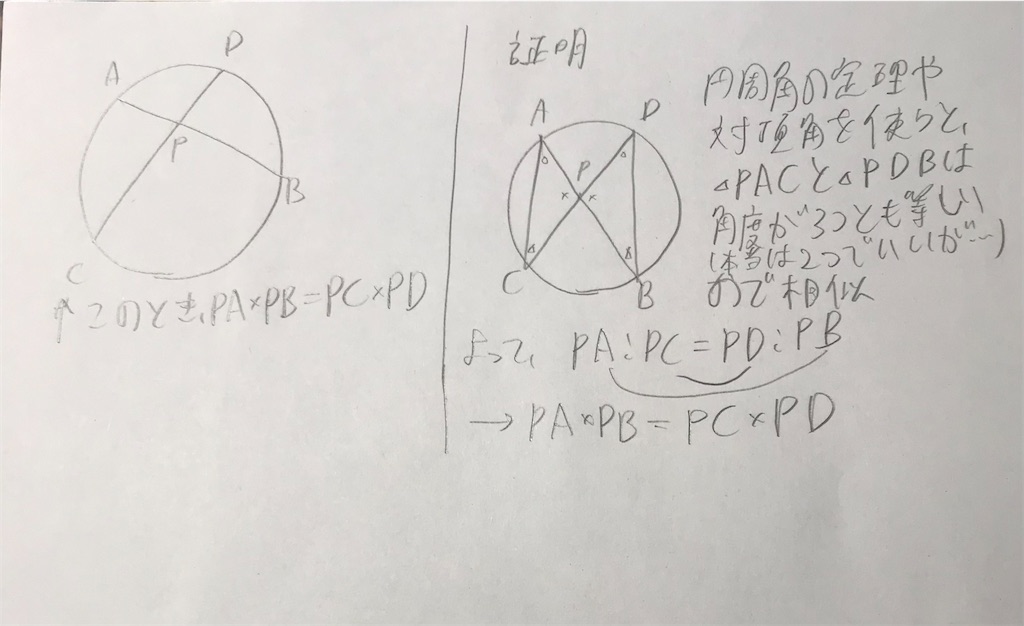 A
D
P
B
C
↑このとき、PA×PB=PC×PD
証明
A
D
P
× ×
C
B
円周角の定理や
対頂角を使うと、
△PACと△PDBは
角度が3つとも等しい
(本当は2つでいいが…)
ので相似
よって、PA:PC=PD:PB
→PA×PB=PC×PD